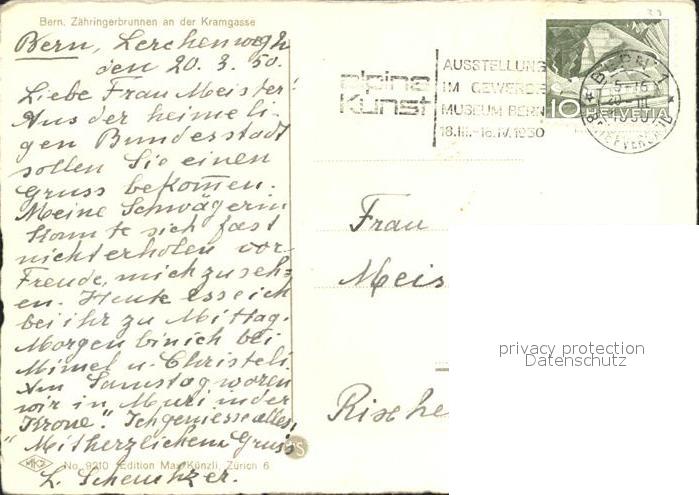 Bern. Zähringerbrunnen an der Kramgasse
Bern, Lerchenweg
den 20. 3. 50.
Liebe Frau Meister!
Aus der heimeli-
gen Bundesstadt
sollen Sie einen
Gruss bekommen.
Meine Schwägerin
konnte sich fast
nicht erholen vor
Freude, mich zu seh=
en. Heute esse ich
bei ihr zu Mittag.
Morgen bin ich bei
Mimel u. Christeli.
Am Samstag waren
wir in Muri in der
"Krone". Ich geniesse alles.
Mit herzlichem Gruss
L. Scheuchzer.
No. 9210 Edition Max Künzli, Zürich 6
alpine
kunst
AUSSTELLUNG
IM GEWERBE
MUSEUM BERN
18.III.-16.IV.1950
10 HELVETIA
BERN 1
BRIEFVERSAND
Frau
Meis
privacy protection
Datenschutz